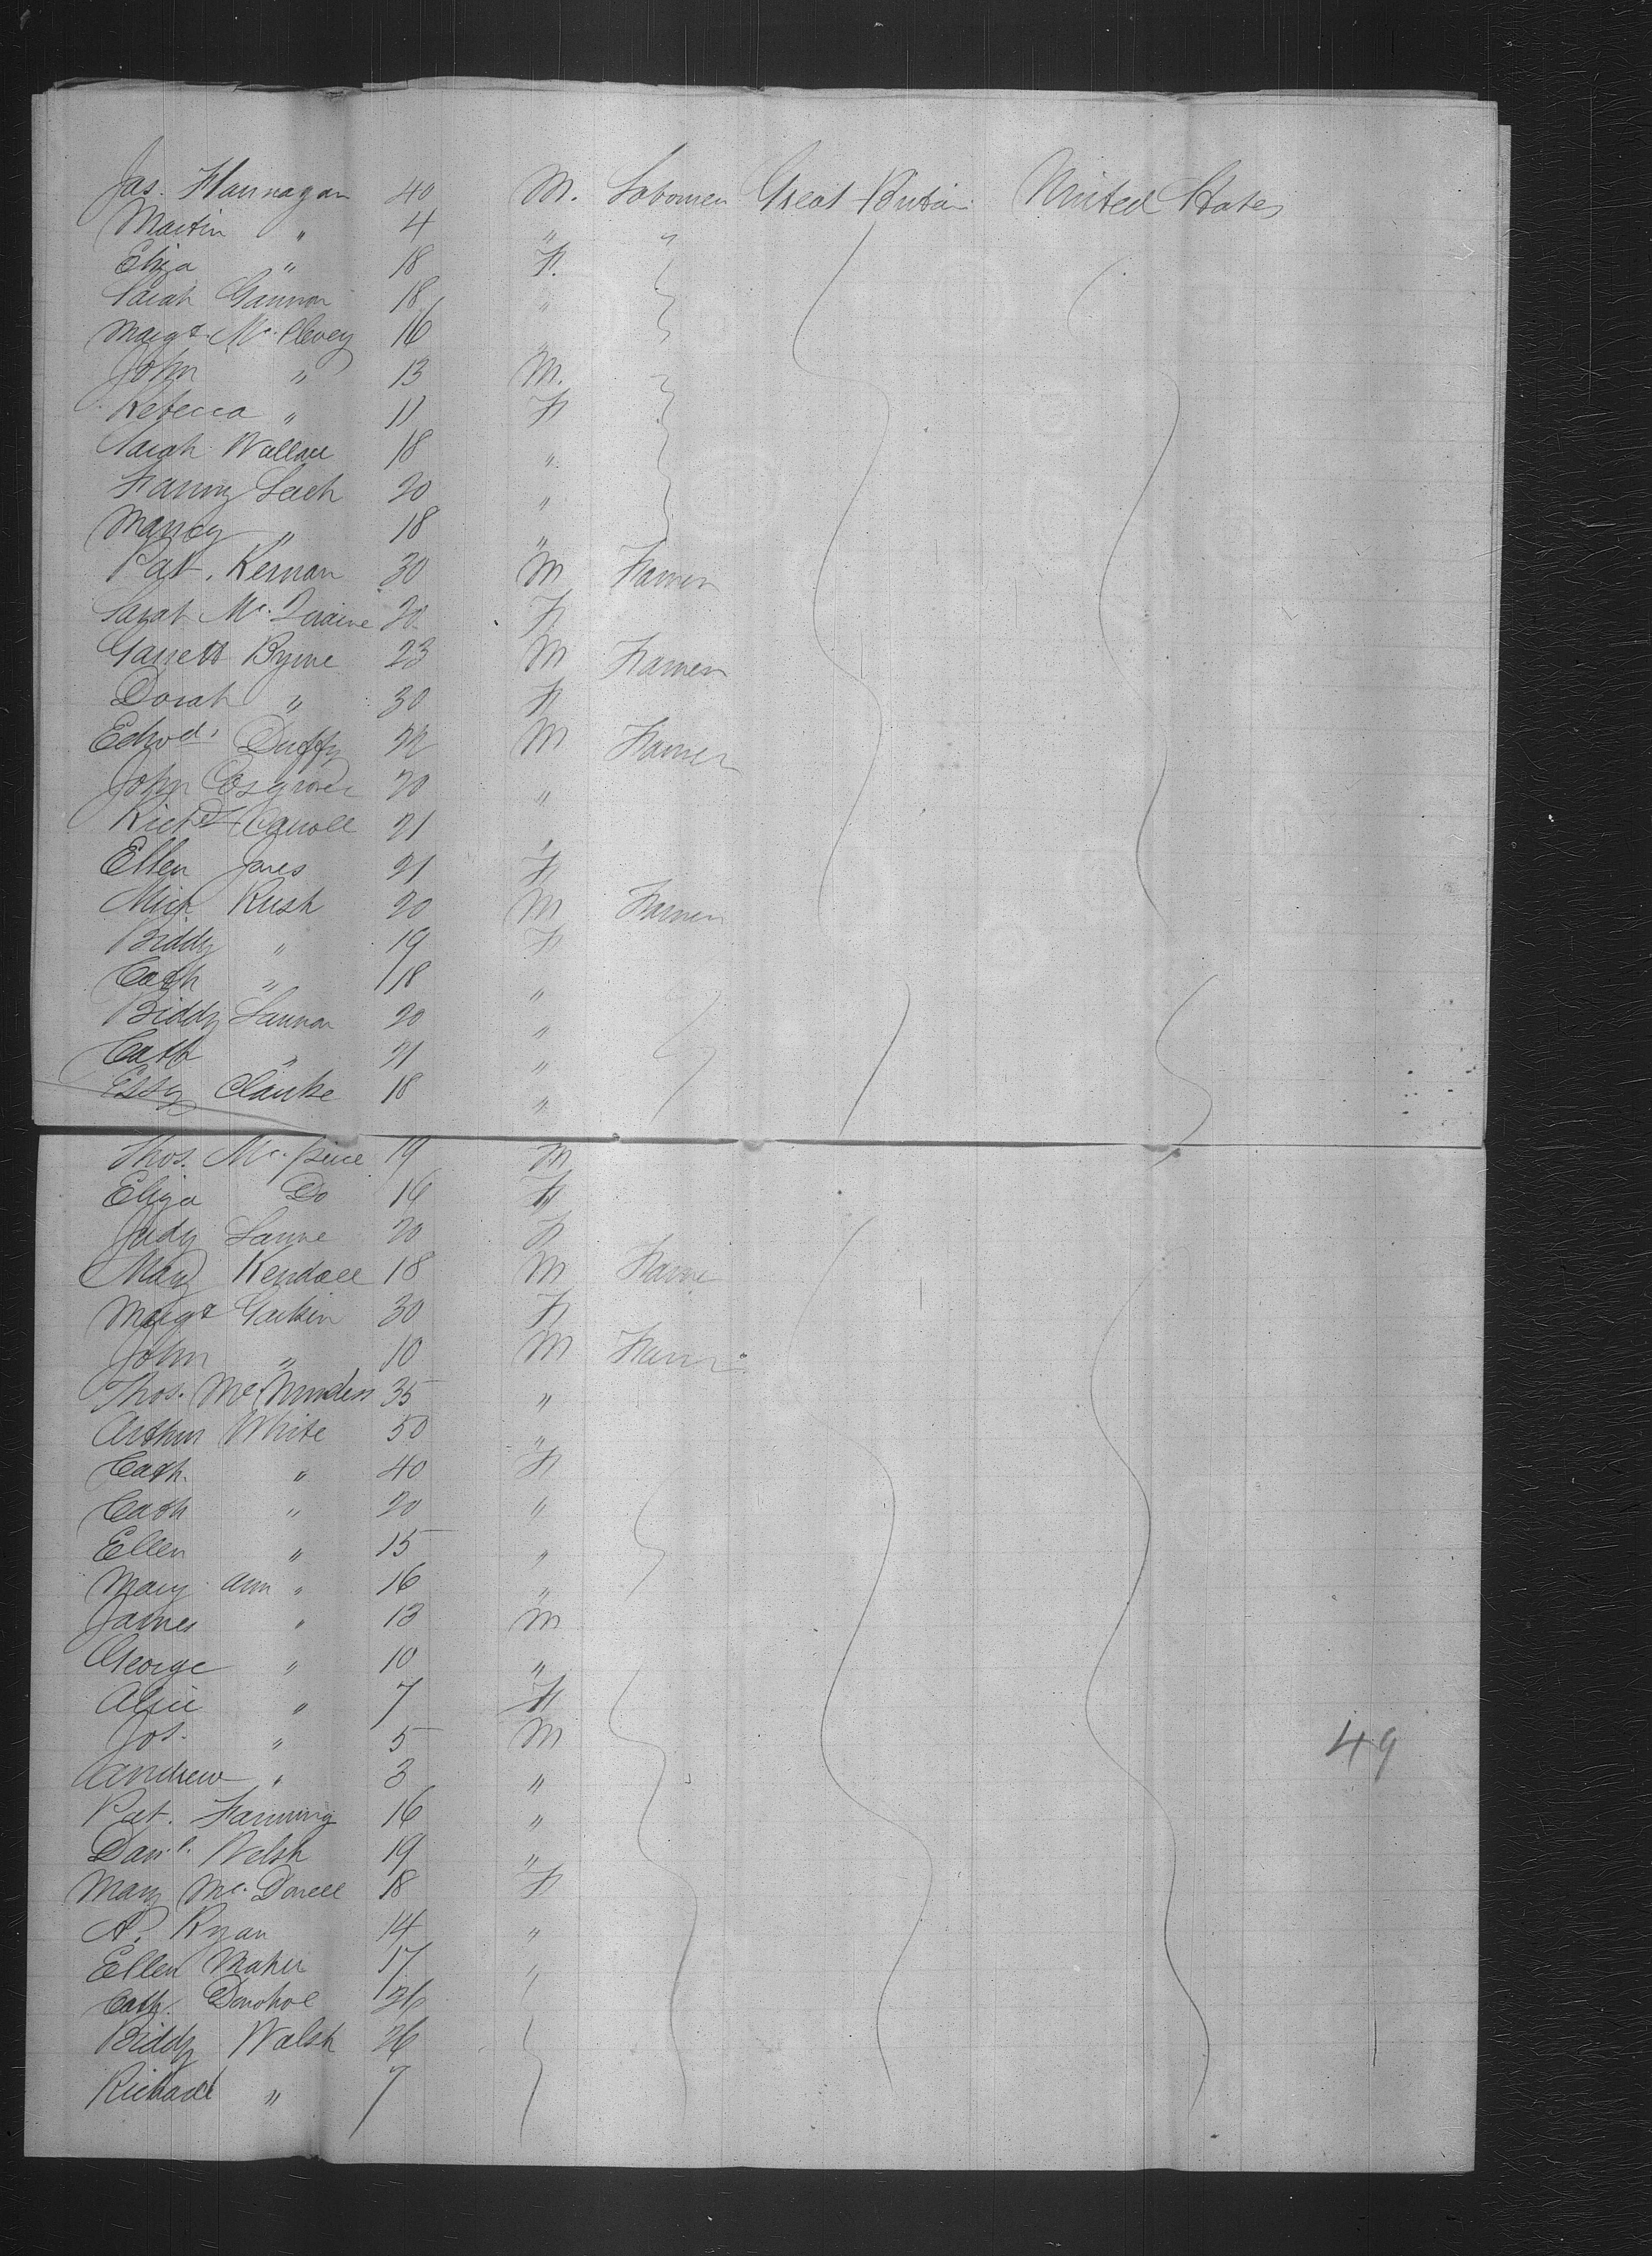 Jas. Flannagan 40 M. Labourer Great Britain United States
Martin " 4 " "
Eliza " 18 F.
Sarah Gannon 18 "
Margt. Mc. Elevey 16 "
John " 13 M.
Rebecca " 11 F
Sarah Wallace 18 "
Fanny Leech 20 "
Nancy " 18 "
Pat. Kernan 30 M Farmer
Sarah Mc. 20 F
Garrett Byrne 23 M Farmer
Dorah " 30 F
Edwd. Duffy 22 M Farmer
John Cosgrove 20 "
Richd Carroll 21 "
Ellen Jones 21 F
Mich Rush 20 M Farmer
Biddy " 19 F
Cath " 18 "
Biddy Lannon 20 "
Cath " 21 "
Essy Clarke 18 "
Thos. Mc. 19 M
Eliza Do 16 F
Judy 20 F
Mary Kendall 18 M Farme
Margt 30 F
John " 10 M Farmer
Thos. Mc 35 "
Arthur White 50 "
Cath. " 40 F
Cath " 20 "
Ellen " 15 "
Mary Ann " 16 "
James " 13 M
George " 10 "
Alice " 7 F
Jos. " 5 M
49
Andrew " 3 "
Pat. Fanning 16 "
Danl. Welsh 19 "
Mary Mc. Donell 18 F
A. Ryan 14 "
Ellen Maher 17 "
Cath. Donohoe 26
Biddy Walsh 26
Richard " 7